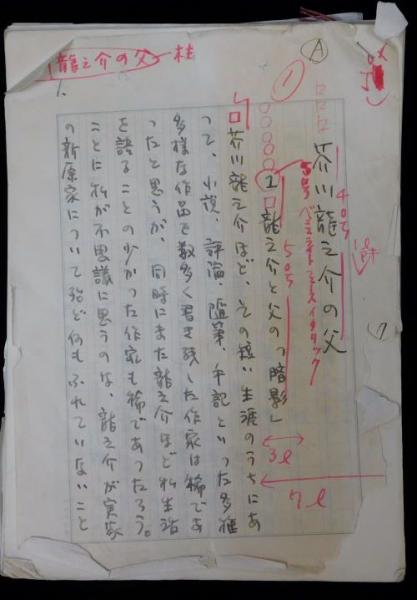 龍之介の父 柱
1.
A
1
芥川龍之介の父
40ち
1 龍之介と父の「暗影」
50ち
3ℓ
7ℓ
芥川龍之介ほど、その短い生涯のうちにあ
って、小説、評論、随筆、手記といった多種
多様な作品を数多く書き残した作家は稀であ
ったと思うが、同時にまた龍之介ほど私生活
を語ることの少かった作家も稀であったろう。
ことに私が不思議に思うのは、龍之介が実家
の新原家について殆ど何もふれていないこと